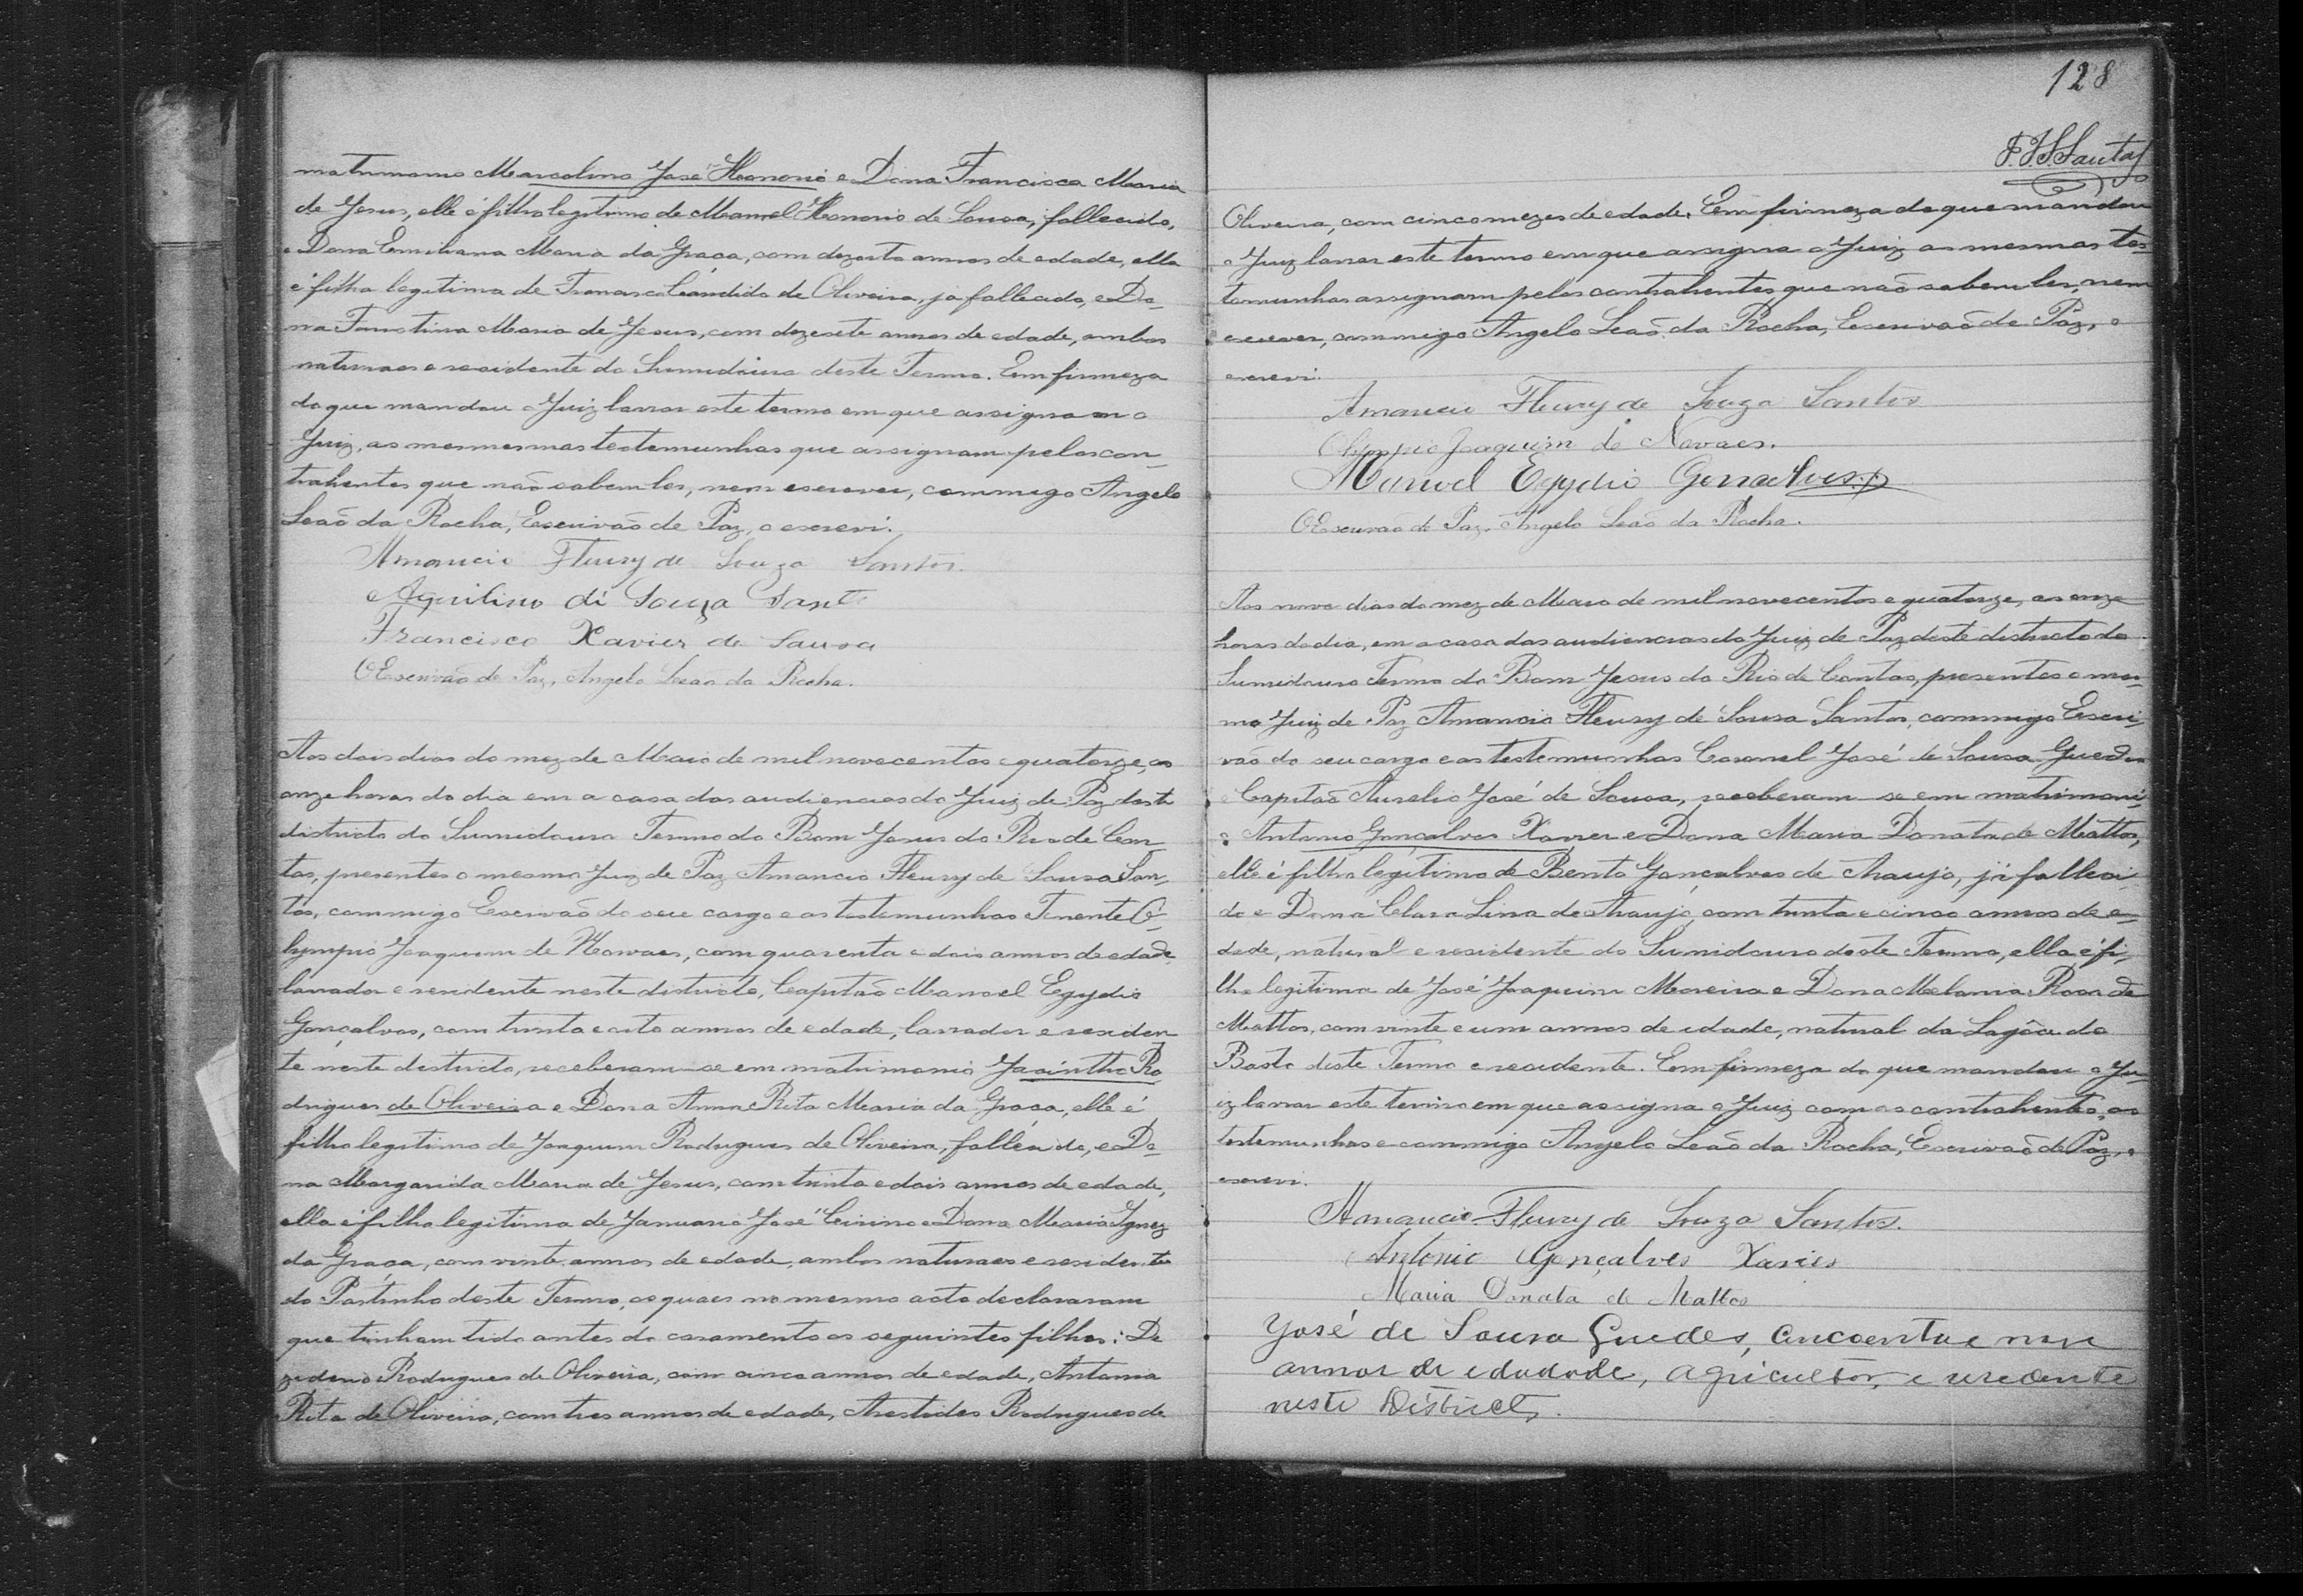 matrimonio Marcolino José Honorio e Dona Francisca Maria
de Jesus, elle é filho legitimo de Manoel Honorio de Sousa, fallecido,
e Dona Emiliana Maria da Graça, com dezoito annos de edade, ella
é filha legitima de Francisco Candido de Oliveira, já fallecido, e Do-
na Faustina Maria de Jesus, com dezesete annos de edade, ambos
naturaes e residente do Sumidouro deste Termo. Em firmeza
do que mandou o Juiz lavrar este termo em que assignam o
Juiz, as mesmermas testemunhas que assignam pelos con-
trahentes que não sabem ler, nem escrever, commigo Angelo
Leaõ da Rocha, Escrivaõ de Paz, o escrevi.
Amancio Fleury de Souza Santos.
Aquilino di Souza Sant
Francisco Xavier de Sousa
O Escrivaõ de Paz, Angelo Leaõ da Rocha.
Aos dois dias do mez de Maio de mil novecentos e quatorze, as
onze horas do dia em a casa das audiencias do Juiz de Paz deste
districto do Sumidouro Termo do Bom Jesus do Rio de Con-
tas, presentes o mesmo Juiz de Paz Amancio Fleury de Sousa San-
tos, commigo Escrivaõ do seu cargo e as testemunhas Tenente O-
lympio Joaquim de Novaes, com quarenta e dois annos de edade,
lavrador e residente neste districto, Capitaõ Manoel Egydio
Gonçalves, com trinta e oito annos de edade, lavrador e residen-
te neste districto, receberam-se em matrimonio Jacintho Ro
drigues de Oliveira e Dona Anna Rita Maria da Graça, elle é
filho legitimo de Joaquim Rodrigues de Oliveira, fallecido, e Do-
na Margarida Maria de Jesus, com trinta e dois annos de edade,
ella é filha legitima de Januario José Cirino e Dona Maria Ignez
da Graça, com vinte annos de edade, ambos naturaes e residente
do Pastinho deste Termo, os quaes no mesmo acto declararam
que tinham tido antes do casamento os seguintes filhos: De
zederio Rodrigues de Oliveira, com cinco annos de edade, Antonia
Rita de Oliveira, com tres annos de edade, Arestides Rodrigues de
128
F.J.S.Santos
Oliveira, com cinco mezes de edade. Em firmeza do que mandou
o Juiz lavrar este termo em que assigna o Juiz as mesmas tes-
temunhas assignam pelos contrahentes que naõ sabem ler, nem
escrever, commigo Angelo Leaõ da Rocha, Escrivaõ de Paz, o
escrevi.
Amancio Fleury de Souza Santos
Olympio Joaquim de Novaes.
Manoel Egydio Gonçalves
O Escrivaõ de Paz, Angelo Leaõ da Rocha.
Aos nove dias do mez de Maio de mil novecentos e quatorze, as onze
horas do dia, em a casa das audiencias do Juiz de Paz deste districto do
Sumidouro Termo do Bom Jesus do Rio de Contas, presentes o mes-
mo Juiz de Paz Amancio Fleury de Sousa Santos, commigo Escri-
vaõ do seu cargo e as testemunhas Coronel José de Sousa Guedes
e Capitaõ Aurelio José de Sousa, receberam-se em matrimoni-
o Antonio Gonçalves Xavier e Dona Maria Donata de Mattos,
elle é filho legitimo de Bento Gonçalves de Araujo, já falleci-
do e Dona Clara Lina de Araujo, com trinta e cinco annos de e-
dade, natural e residente do Sumidouro deste Termo, ella é fi-
lha legitima de José Joaquim Moreira e Dona Melania Rosa de
Mattos, com vinte e um annos de edade, natural da Lagôa do
Basto deste Termo e residente. Em firmeza do que mandou o Ju-
iz lavrar este termo em que assigna o Juiz com os contrahentes, as
testemunhas e commigo Angelo Leaõ da Rocha, Escrivaõ de Paz, o
escrevi.
Amancio Fleury de Souza Santos.
Antonio Gonçalves Xavier
Maria Donata de Mattos
José de Sousa Guedes, cincoenta e nove
annos de edadade, agricultor, e resedente
neste Districto.